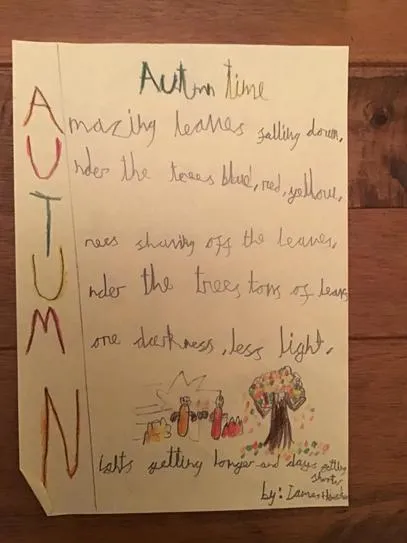 Autmn time
Amazing leaves falling down,
Under the trees blue, red, yellow,
Trees shaving off the leaves,
Under the trees tons of leaves
More darkness, less light,
Nights getting longer and days getting
shorter
by: